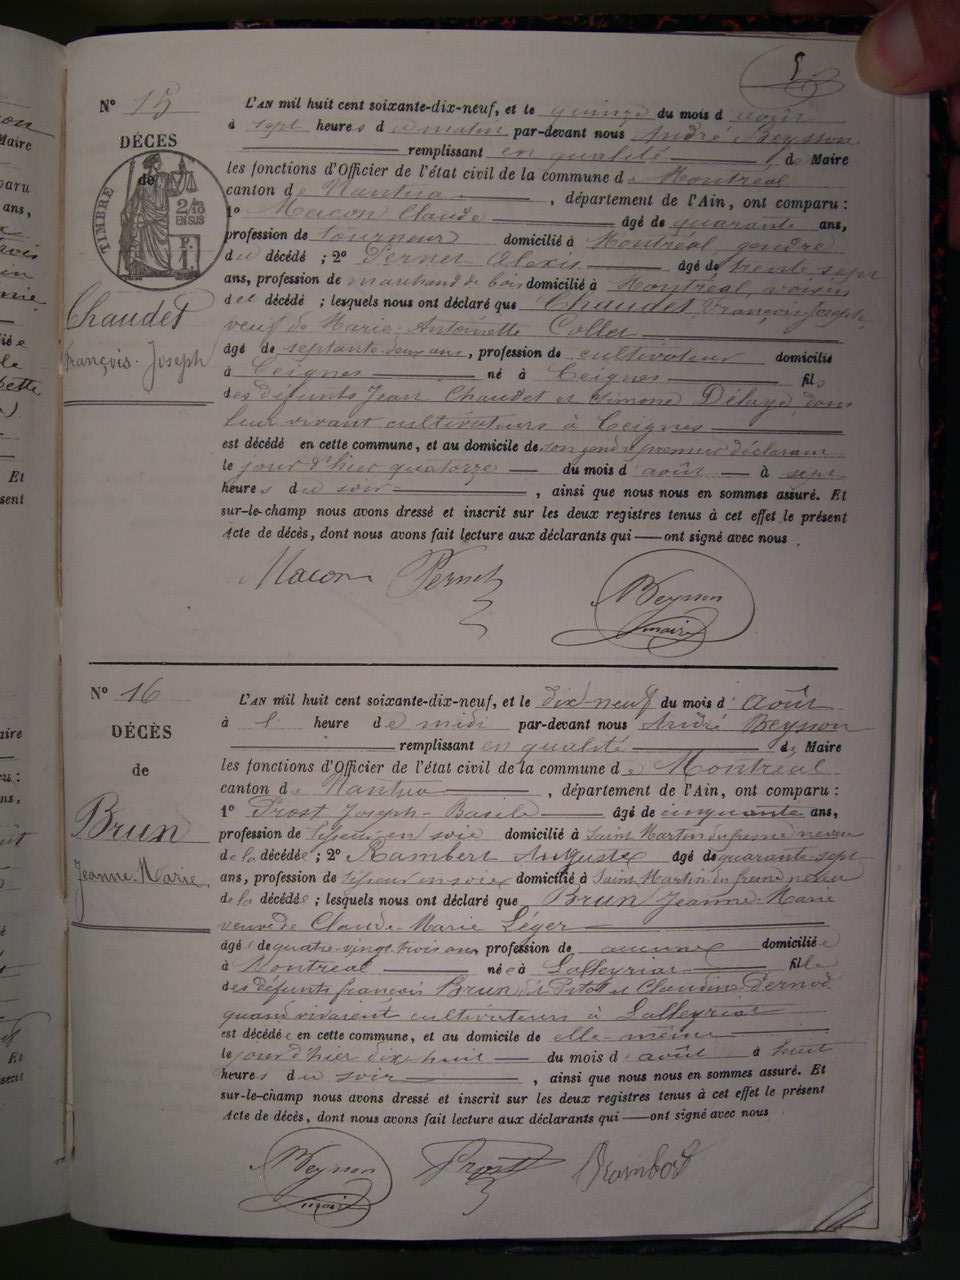 5
N° 15
DÉCÈS
de
TIMBRE
2/10
EN SUS
Chaudet
François-Joseph
L'AN mil huit cent soixante-dix-neuf, et le quinze du mois d'août
à sept heures du matin par-devant nous André Beysson
remplissant en qualité de Maire
les fonctions d'Officier de l'état civil de la commune de Montréal
canton de Nantua, département de l'Ain, ont comparu :
1° Macon Claude âgé de quarante ans,
profession de tourneur domicilié à Montréal, gendre
du décédé ; 2° Pernet Alexis âgé de trente sept
ans, profession de marchand de bois domicilié à Montréal, voisin
du décédé ; lesquels nous ont déclaré que Chaudet François Joseph
veuf de Marie-Antoinette Collet
âgé de septante deux ans, profession de cultivateur domicilié
à Ceignes né à Ceignes fils
des défunts Jean Chaudet et Simone Deluye, dans
leur vivant cultivateurs à Ceignes
est décédé en cette commune, et au domicile de son gendre premier déclarant
le jour d'hier quatorze du mois d'août à sept
heures du soir, ainsi que nous nous en sommes assuré. Et
sur-le-champ nous avons dressé et inscrit sur les deux registres tenus à cet effet le présent
Acte de décès, dont nous avons fait lecture aux déclarants qui ont signé avec nous.
Macon Pernet Beysson
maire
N° 16
DÉCÈS
de
Brun
Jeanne-Marie
L'AN mil huit cent soixante-dix-neuf, et le dix-neuf du mois d'août
à l' heure de midi par-devant nous André Beysson
remplissant en qualité de Maire
les fonctions d'Officier de l'état civil de la commune de Montréal
canton de Nantua, département de l'Ain, ont comparu :
1° Prost Joseph-Basile âgé de cinquante ans,
profession de tisseur en soie domicilié à Saint Martin du fresne neveu
de la décédée ; 2° Rambert Auguste âgé de quarante-sept
ans, profession de tisseur en soie domicilié à Saint Martin du frene neveu
de la décédée ; lesquels nous ont déclaré que Brun Jeanne-Marie
veuve de Claude-Marie Léger
âgée de quatre-vingt-trois ans profession de aucune domiciliée
à Montréal née à Lalleyriat fille
des défunts François Brun dit Potot et Claudine Pernod
quand vivaient cultivateurs à Lalleyriat
est décédée en cette commune, et au domicile de elle-même
le jour d'hier dix-huit du mois d'août à huit
heures du soir, ainsi que nous nous en sommes assuré. Et
sur-le-champ nous avons dressé et inscrit sur les deux registres tenus à cet effet le présent
Acte de décès, dont nous avons fait lecture aux déclarants qui ont signé avec nous
Beysson Prost Rambert
maire